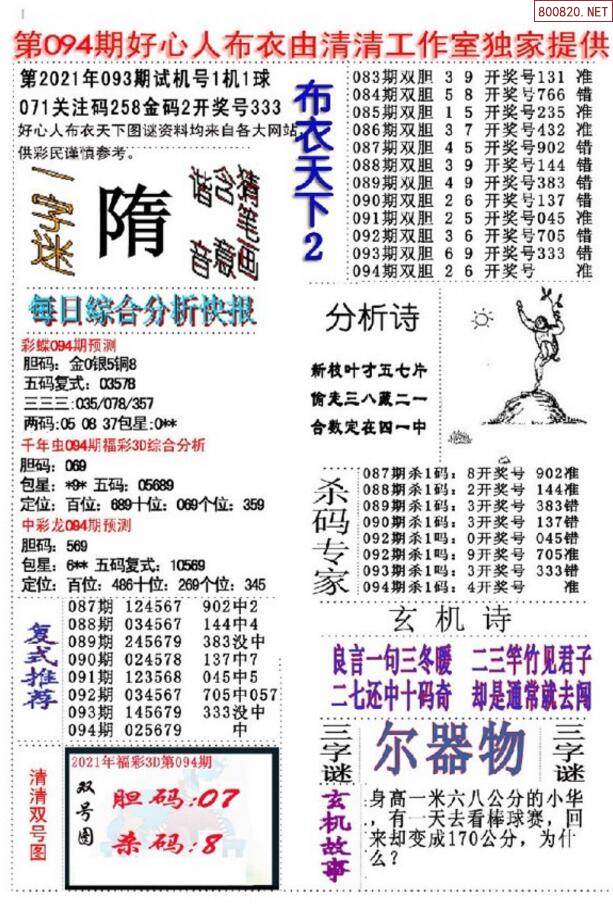 800820.NET
第094期好心人布衣由清清工作室独家提供
第2021年093期试机号1机1球
071关注码258金码2开奖号333
好心人布衣天下图谜资料均来自各大网站,
供彩民谨慎参考。
一字迷
隋
猜笔画
含意
谐音
布衣天下2
083期双胆 3 9 开奖号131 准
084期双胆 5 8 开奖号766 错
085期双胆 1 5 开奖号235 准
086期双胆 3 7 开奖号432 准
087期双胆 4 5 开奖号902 错
088期双胆 3 9 开奖号144 错
089期双胆 4 9 开奖号383 错
090期双胆 2 6 开奖号137 错
091期双胆 2 5 开奖号045 准
092期双胆 3 6 开奖号705 错
093期双胆 6 9 开奖号333 错
094期双胆 2 6 开奖号 准
每日综合分析快报
彩蝶094期预测
胆码：金0银5铜8
五码复式：03578
三三三:035/078/357
两码:05 08 37包星:0**
千年虫094期福彩3D综合分析
胆码：069
包星：*9* 五码：05689
定位：百位：689十位：069个位：359
中彩龙094期预测
胆码：569
包星：6** 五码复式：10569
定位：百位：486十位：269个位：345
分析诗
新枝叶才五七片
偷走三八藏二一
合数定在四一中
杀码专家
087期杀1码：8开奖号 902准
088期杀1码：2开奖号 144准
089期杀1码：3开奖号 383错
090期杀1码：3开奖号 137错
092期杀1吗：0开奖号 045错
092期杀1吗：9开奖号 705准
093期杀1吗：3开奖号 333错
094期杀1码：4开奖号 准
复式推荐
087期 124567 902中2
088期 034567 144中4
089期 245679 383没中
090期 024578 137中7
091期 123568 045中5
092期 034567 705中057
093期 145679 333没中
094期 025679 中
玄机诗
良言一句三冬暖 二三竿竹见君子
二七还中十码奇 却是通常就去闯
三字谜
尔器物
三字谜
清清双号图
2021年福彩3D第094期
双号图
胆码:07
杀码:8
玄机故事
身高一米六八公分的小华
，有一天去看棒球赛，回
来却变成170公分，为什
么？